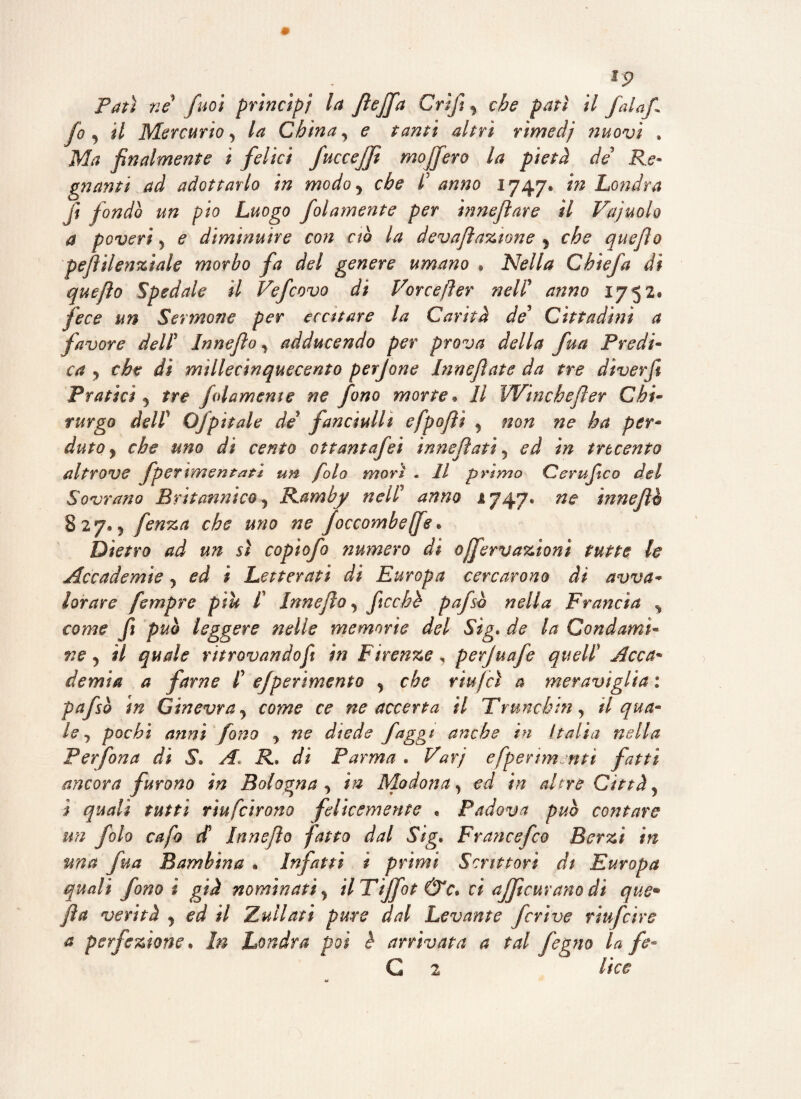 19
Patì ne' ſuoi principj la ſteſſa Criſi, che patì il ſalaſ-
ſo, il Mercurio, la China, e tanti altri rimedj nuovi.
Ma finalmente i felici ſucceſſi moſſero la pietà de' Re-
gnanti ad adottarlo in modo, che l' anno 1747. in Londra
ſi fondò un pio Luogo ſolamente per inneſtare il Vajuolo
a poveri, e diminuire con ciò la devaſtazione, che queſto
peſtilenziale morbo fa del genere umano. Nella Chieſa di
queſto Spedale il Veſcovo di Vorceſter nell' anno 1752.
fece un Sermone per eccitare la Carità de' Cittadini a
favore dell' Inneſto, adducendo per prova della ſua Predi-
ca, che di millecinquecento perſone Inneſtate da tre diverſi
Pratici, tre ſolamente ne ſono morte. Il Wincheſter Chi-
rurgo dell' Oſpitale de' fanciulli eſpoſti, non ne ha per-
duto, che uno di cento ottantaſei inneſtati, ed in trecento
altrove ſperimentati un ſolo morì. Il primo Ceruſico del
Sovrano Britannico, Ramby nell' anno 1747. ne inneſtò
827., ſenza che uno ne ſoccombeſſe.
Dietro ad un sì copioſo numero di oſſervazioni tutte le
Accademie, ed i Letterati di Europa cercarono di avva-
lorare ſempre più l' Inneſto, ſicchè paſsò nella Francia,
come ſi può leggere nelle memorie del Sig. de la Condami-
ne, il quale ritrovandoſi in Firenze, perſuaſe quell' Acca-
demia a farne l' eſperimento, che riuſcì a meraviglia:
paſsò in Ginevra, come ce ne accerta il Trunchin, il qua-
le, pochi anni ſono, ne diede ſaggi anche in Italia nella
Perſona di S. A. R. di Parma. Varj eſperimenti fatti
ancora furono in Bologna, in Modona, ed in altre Città,
i quali tutti riuſcirono felicemente. Padova può contare
un ſolo caſo d' Inneſto fatto dal Sig. Franceſco Berzi in
una ſua Bambina. Infatti i primi Scrittori di Europa
quali ſono i già nominati, il Tiſſot &c. ci aſſicurano di que-
ſta verità, ed il Zullati pure dal Levante ſcrive riuſcire
a perfezione. In Londra poi è arrivata a tal ſegno la fe-
C 2 lice